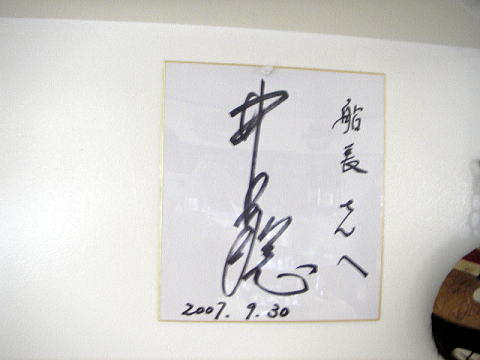 船長さんへ
井
2007. 9. 30